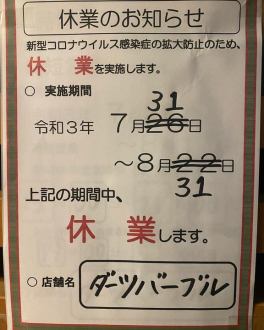 休業のお知らせ
新型コロナウイルス感染症の拡大防止のため、
休 業を実施します。
○ 実施期間
31
令和3年 7月26日
～8月22日
31
上記の期間中、
休 業します。
○店舗名 ダーツバーブル